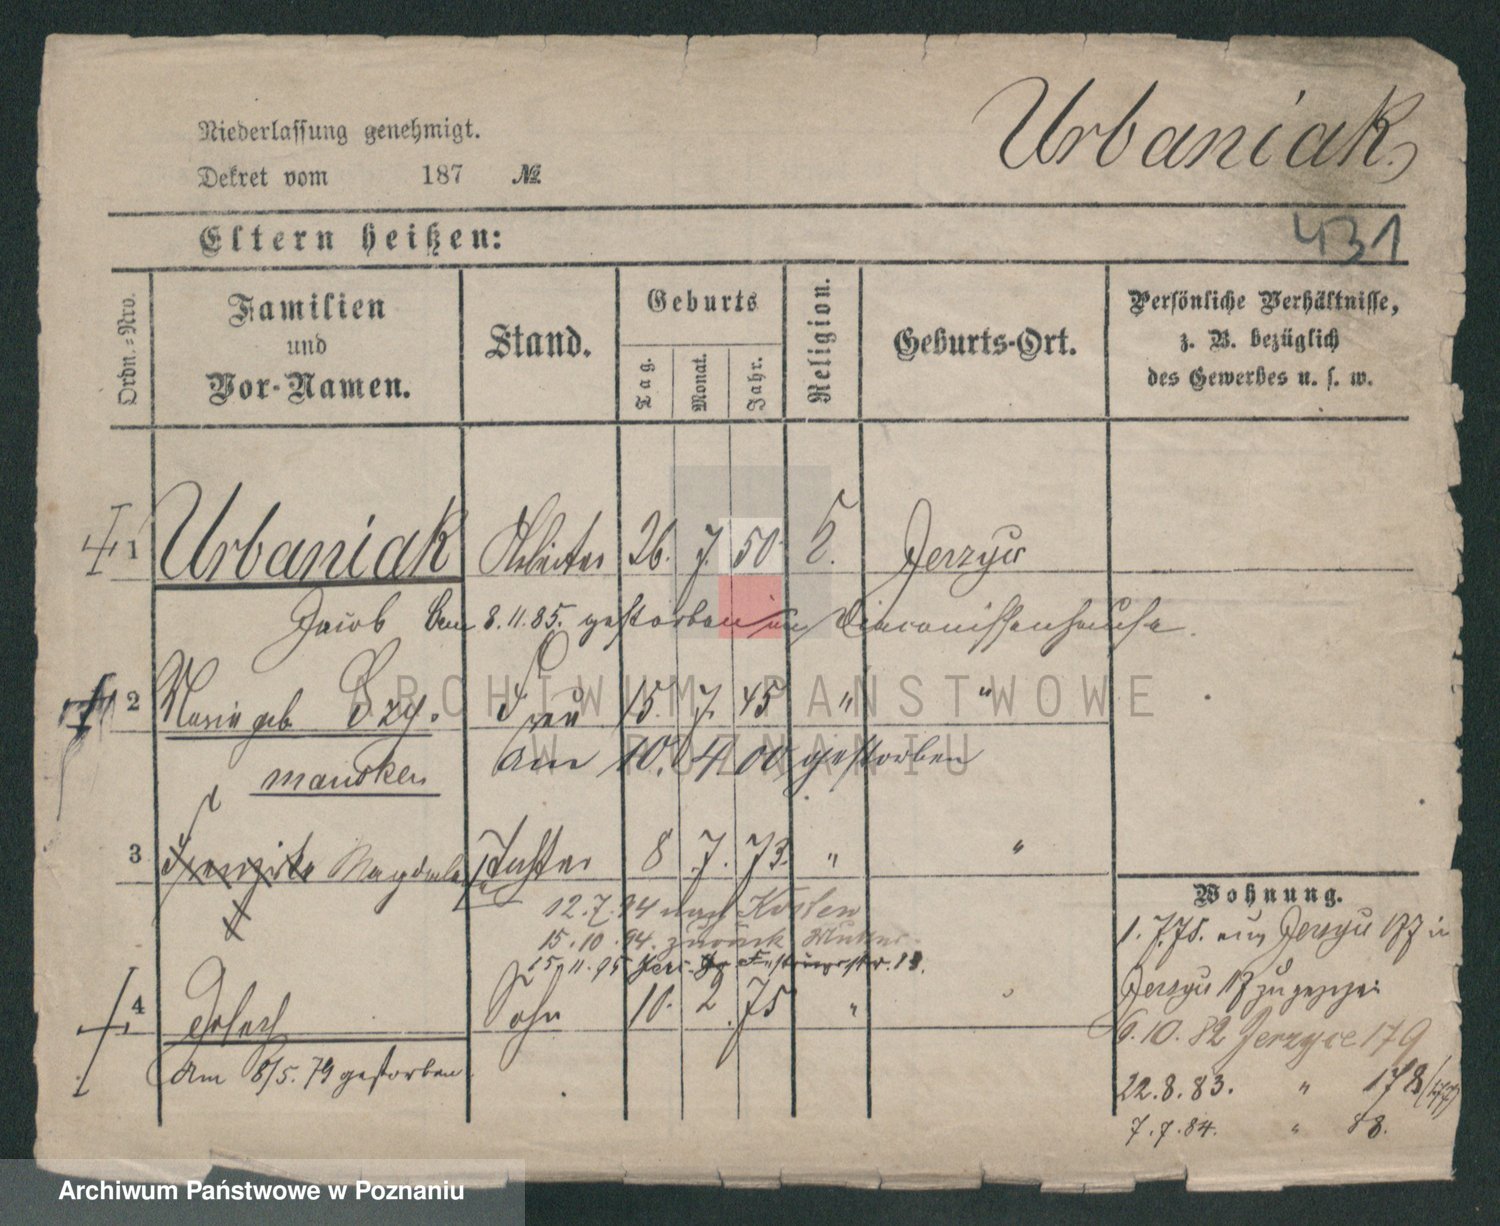 Urbaniak
Niederlassung genehmigt.
Dekret vom 187 №
431
Eltern heißen:
Ordn.=Nro.
Familien
und
Vor-Namen.
Stand.
Geburts
Tag.
Monat.
Jahr.
Religion.
Geburts-Ort.
Persönliche Verhältnisse,
z. B. bezüglich
des Gewerbes u. s. w.
1 Urbaniak Arbeiter 26. 7. 50 Jerzyce
Jacob Am 8.11.85. gestorben im Diaconissenhause.
2 Marie geb Szy- Frau 15. 7. 45 " "
manska
Am 10. 4. 00 gestorben
3 Magdale Tochter 8 7. 73. " "
12.7.94 nach Kosten
15.10.94. zurück Mutter.
15.11.95
4 Sohn 10. 2. 75 "
Am 8/5. 79 gestorben.
Wohnung.
1. 7. 75. aus Jerzyce 177 in
Jerzyce 17 zugezogen
6.10.82 Jerzyce 179
22.8.83. " 178 (177)
7.7.84. " 88.
ARCHIWUM PAŃSTWOWE
W POZNANIU
Archiwum Państwowe w Poznaniu